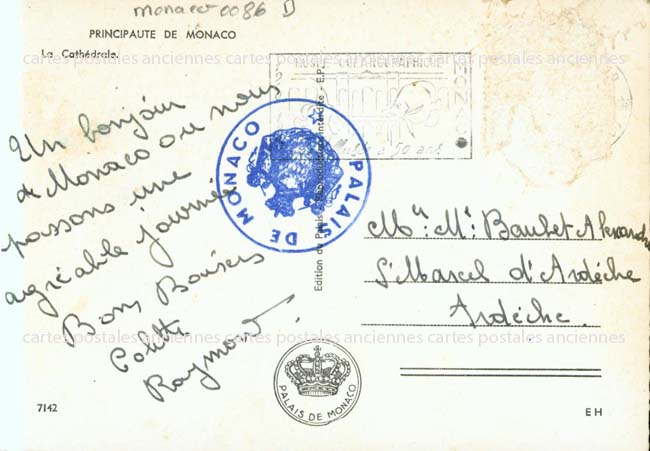 monaco 0086 D
PRINCIPAUTE DE MONACO
La Cathédrale.
Un bonjour
de Monaco ou nous
passons une
agréable journée
Bons Baisers
Colette
Raymond
PALAIS DE MONACO
Edition du Palais - Reproduction interdite - E.P.
MUSEE OCEANOGRAPHIQUE
a 50 ans
Mr. Me. Baubet Alexandre
St Marcel d'Ardèche
Ardèche.
PALAIS DE MONACO
7142
EH
cartes postales anciennes cartes postales anciennes cartes postales anciennes
cartes postales anciennes cartes postales anciennes cartes postales anciennes